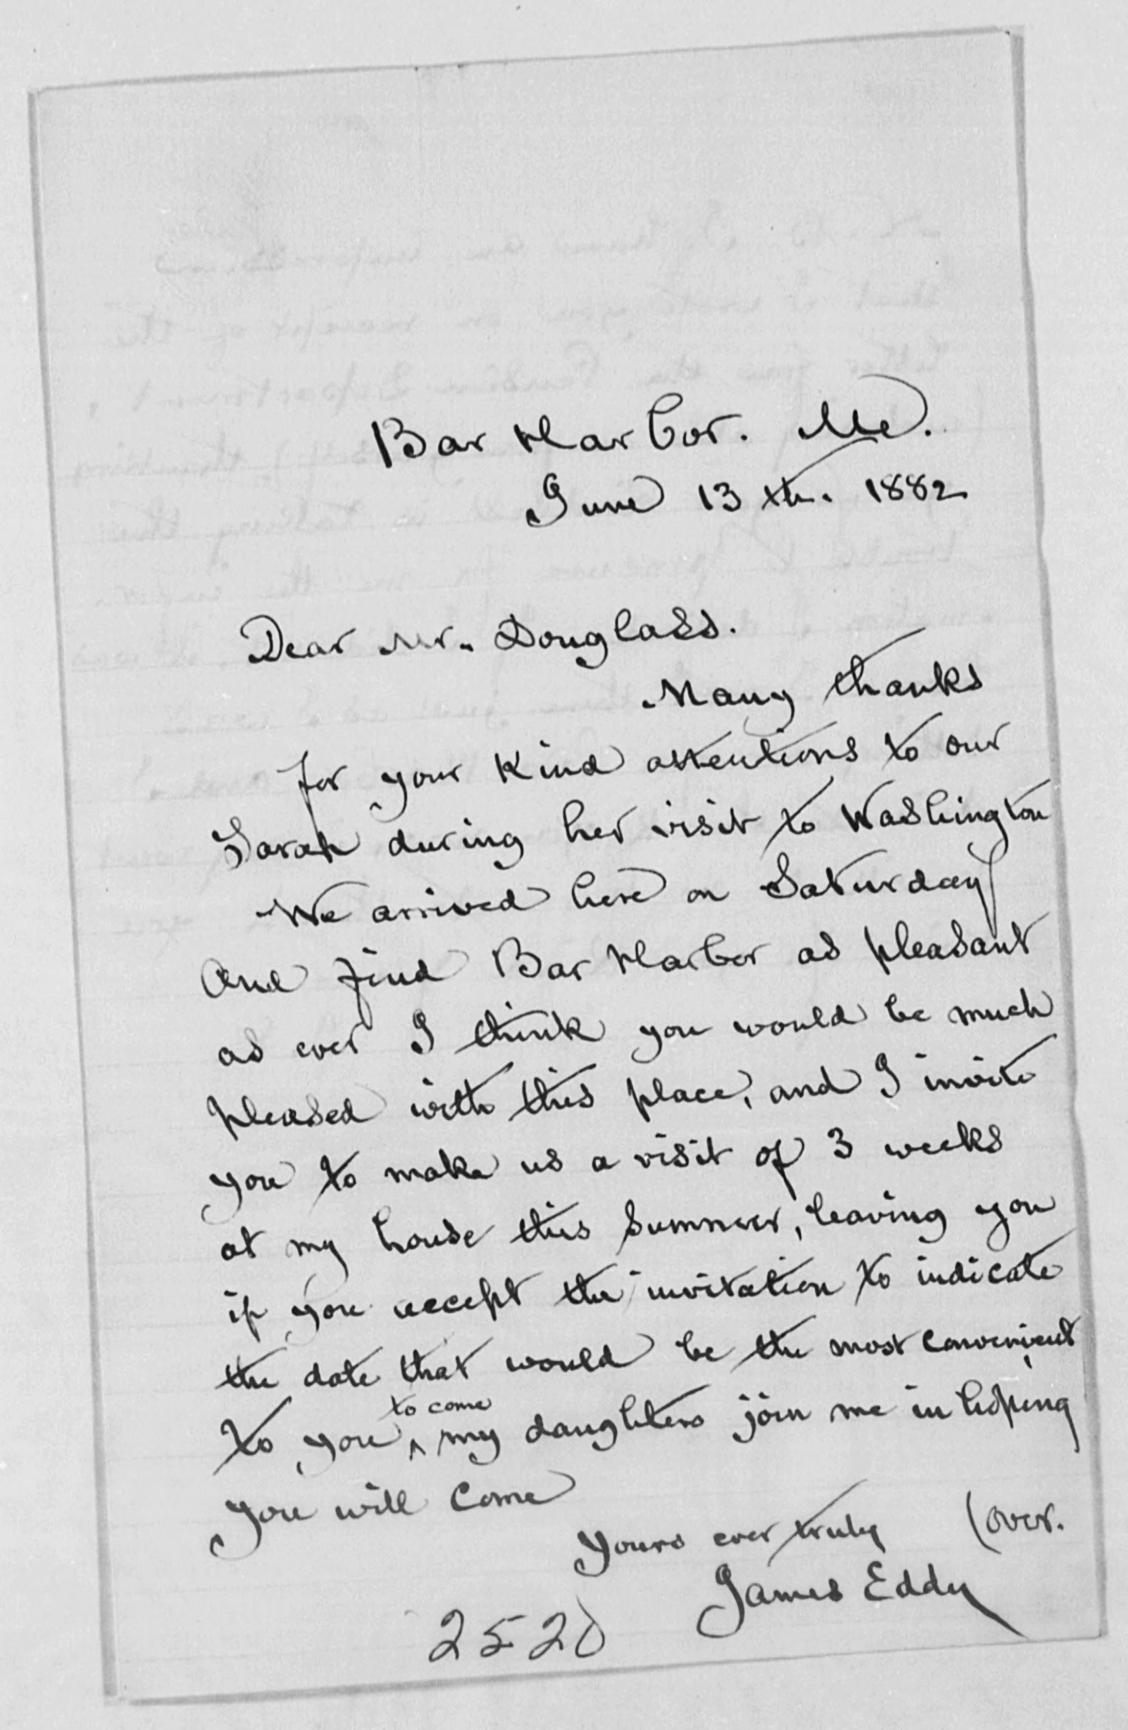 Bar Harbor. Me.
June 13th. 1882
Dear Mr. Douglass.
Many thanks
for your kind attentions to our
Sarah during her visit to Washington
We arrived here on Saturday
And find Bar Harbor as pleasant
as ever I think you would be much
pleased with this place, and I invite
you to make us a visit of 3 weeks
at my house this summer, leaving you
if you accept the invitation to indicate
the date that would be the most convenient
to come
to you ^ my daughters join me in hoping
you will come
Yours ever truly (over.
James Eddy
2520